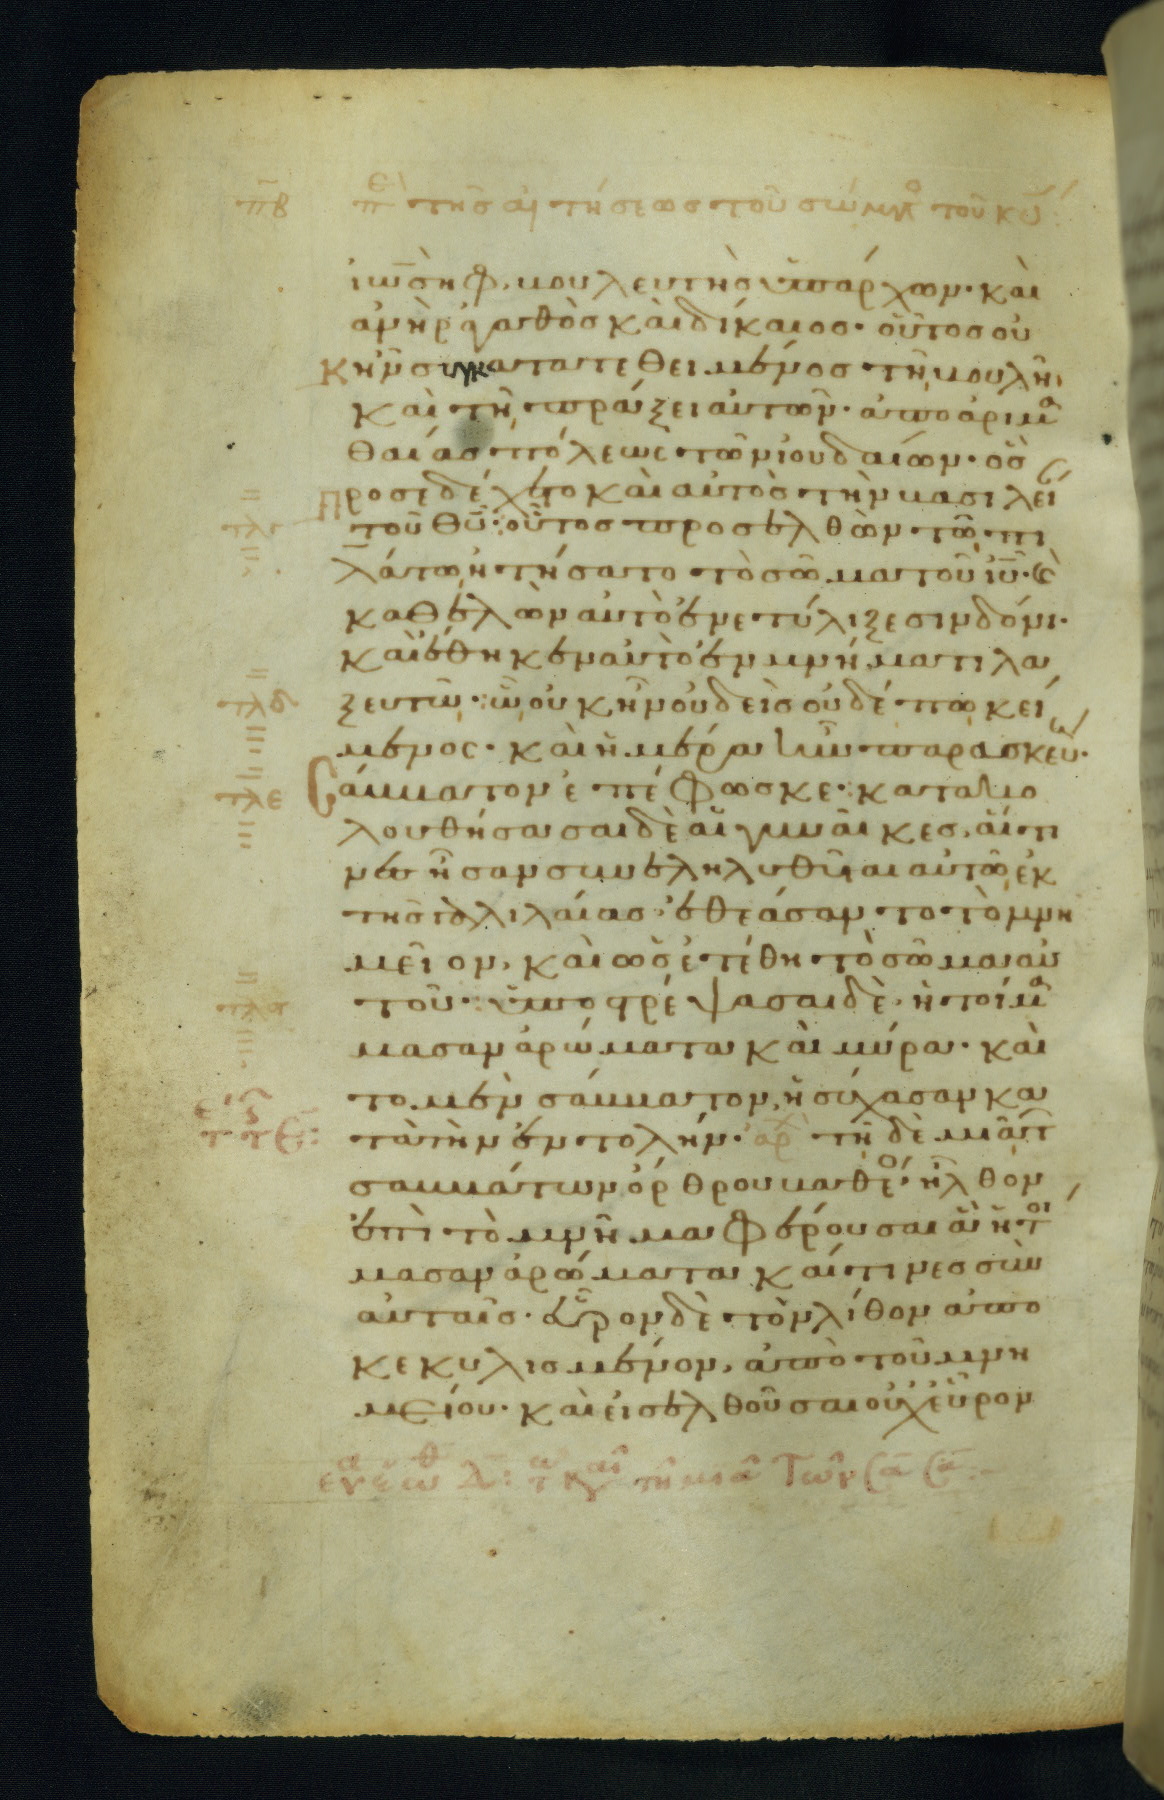 π̅β̅ π̅ε̅ τῆς αἰτήσεως τοῦ σώμ̅α̅τ̅ο̅ς̅ τοῦ κ̅υ̅
ἰωσὴφ, βουλευτὴς ὑπάρχων· καὶ
ἀνὴρ ἀγαθὸς καὶ δίκαιος· οὗτος οὐ
κ ἦν συγκατατεθειμένος τῇ βουλῇ
καὶ τῇ πράξει αὐτῶν· ἀπο ἀριμα
θαίας πόλεως τῶν ἰουδαίων· ὃς
προσεδέχετο καὶ αὐτὸς τὴν βασιλεί
τοῦ θ̅υ̅· οὗτος προσελθὼν τῶ πι
λάτω ἠτήσατο τὸ σῶμα τοῦ ι̅υ̅· κὲ
καθελὼν αὐτὸ ἐνετύλιξε σινδόνι·
καὶ ἔθηκεν αὐτὸ ἐν μνήματι λα
τ̅λ̅δ̅ ξευτῶ· ὧ οὐκ ἦν οὐδεὶς οὐδέπω κεί
μενος· καὶ ἡμέρα ἦν παρασκευή·
τ̅λ̅ε̅ Σάββατον ἐπέφωσκε· κατακο
λουθήσασαι δὲ αἱ γυναῖκες, αἵτι
νες ἦσαν συνεληλυθυῖαι αὐτῶ ἐκ
τῆς γαλιλαίας· ἐθεάσαντο τὸ μνη
μεῖον, καὶ ὡς ἐτέθη τὸ σῶμα αὐ
τοῦ· ὑποστρέψασαι δὲ, ἡτοίμα
μασαν ἀρώματα καὶ μύρα· καὶ
το μὲν σάββατον, ἡσύχασαν κα
τὰ τὴν ἐντολήν· ἀρχ τῇ δὲ μιᾷ τ̅
σαββάτων ὄρθρου βαθέος ἦλθον
ἐπὶ τὸ μνῆμα φέρουσαι ἃ ἡτοί
μασαν ἀρώματα καί τινες σὺν
αὐταῖς· εὗρον δὲ τὸν λίθον ἀπο
κεκυλισμένον, ἀπὸ τοῦ μνη
μείου· καὶ εἰσελθοῦσαι οὐχ εὗρον
τῇ μιᾷ τῶν